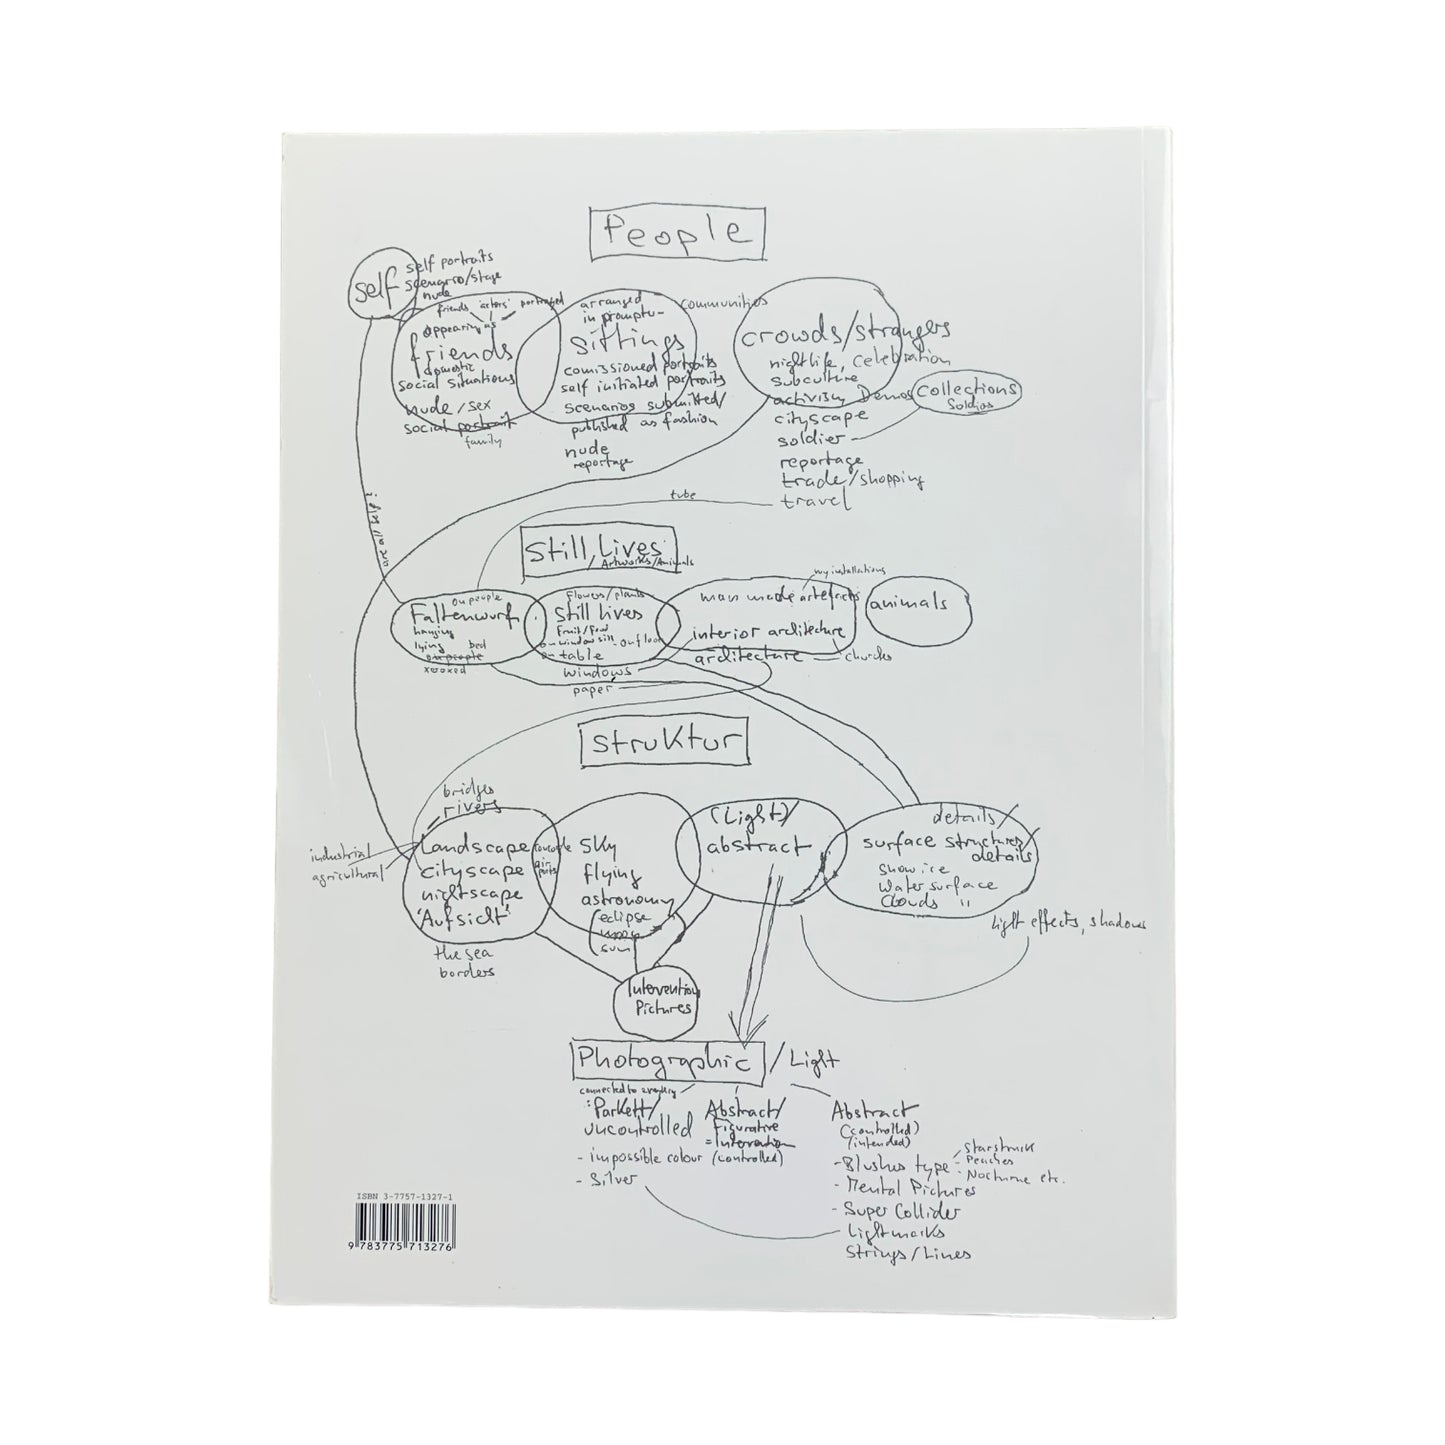 People
self
self portraits
scenario/stage
nude
friends 'actors' portrayed
appearing as
friends
domestic
social situations
nude/sex
social portrait
family
arranged
in promptu-
sittings
comissioned portraits
self initiated portraits
scenarios submitted/
published as fashion
nude
reportage
communities
crowds/strangers
nightlife, celebration
subculture
activism Demos
cityscape
soldier
reportage
trade/shopping
travel
collections
Soldios
tube
Still Lives
/ Artworks/Animals
on people
Faltenwurf
hanging
lying bed
on people
Flowers/plants
Still lives
Fruit/Food
on windowsill - on floor
on table
windows
paper
my installations
man made artefacts
interior architecture
architecture
churches
animals
Struktur
bridges
rivers
industrial
agricultural
Landscape
cityscape
nightscape
'Aufsicht'
the sea
borders
concorde
air
ports
Sky
flying
astronomy
eclipse
moon
sun
(Light)/
abstract
details/
surface structures
details
Snow ice
Water surface
Clouds "
Light effects, shadows
Intervention
Pictures
Photographic / Light
connected to everything
: Parkett/
uncontrolled
- impossible colour
- Silver
Abstract/
Figurative
= Intervention
(controlled)
Abstract
(controlled)
(intended)
- Blushes type
Starstruck
- Peaches
- Nocturne etc.
- Mental Pictures
- Super Collider
- Lightmarks
Strings/Lines
ISBN 3-7757-1327-1
9 783775 713276